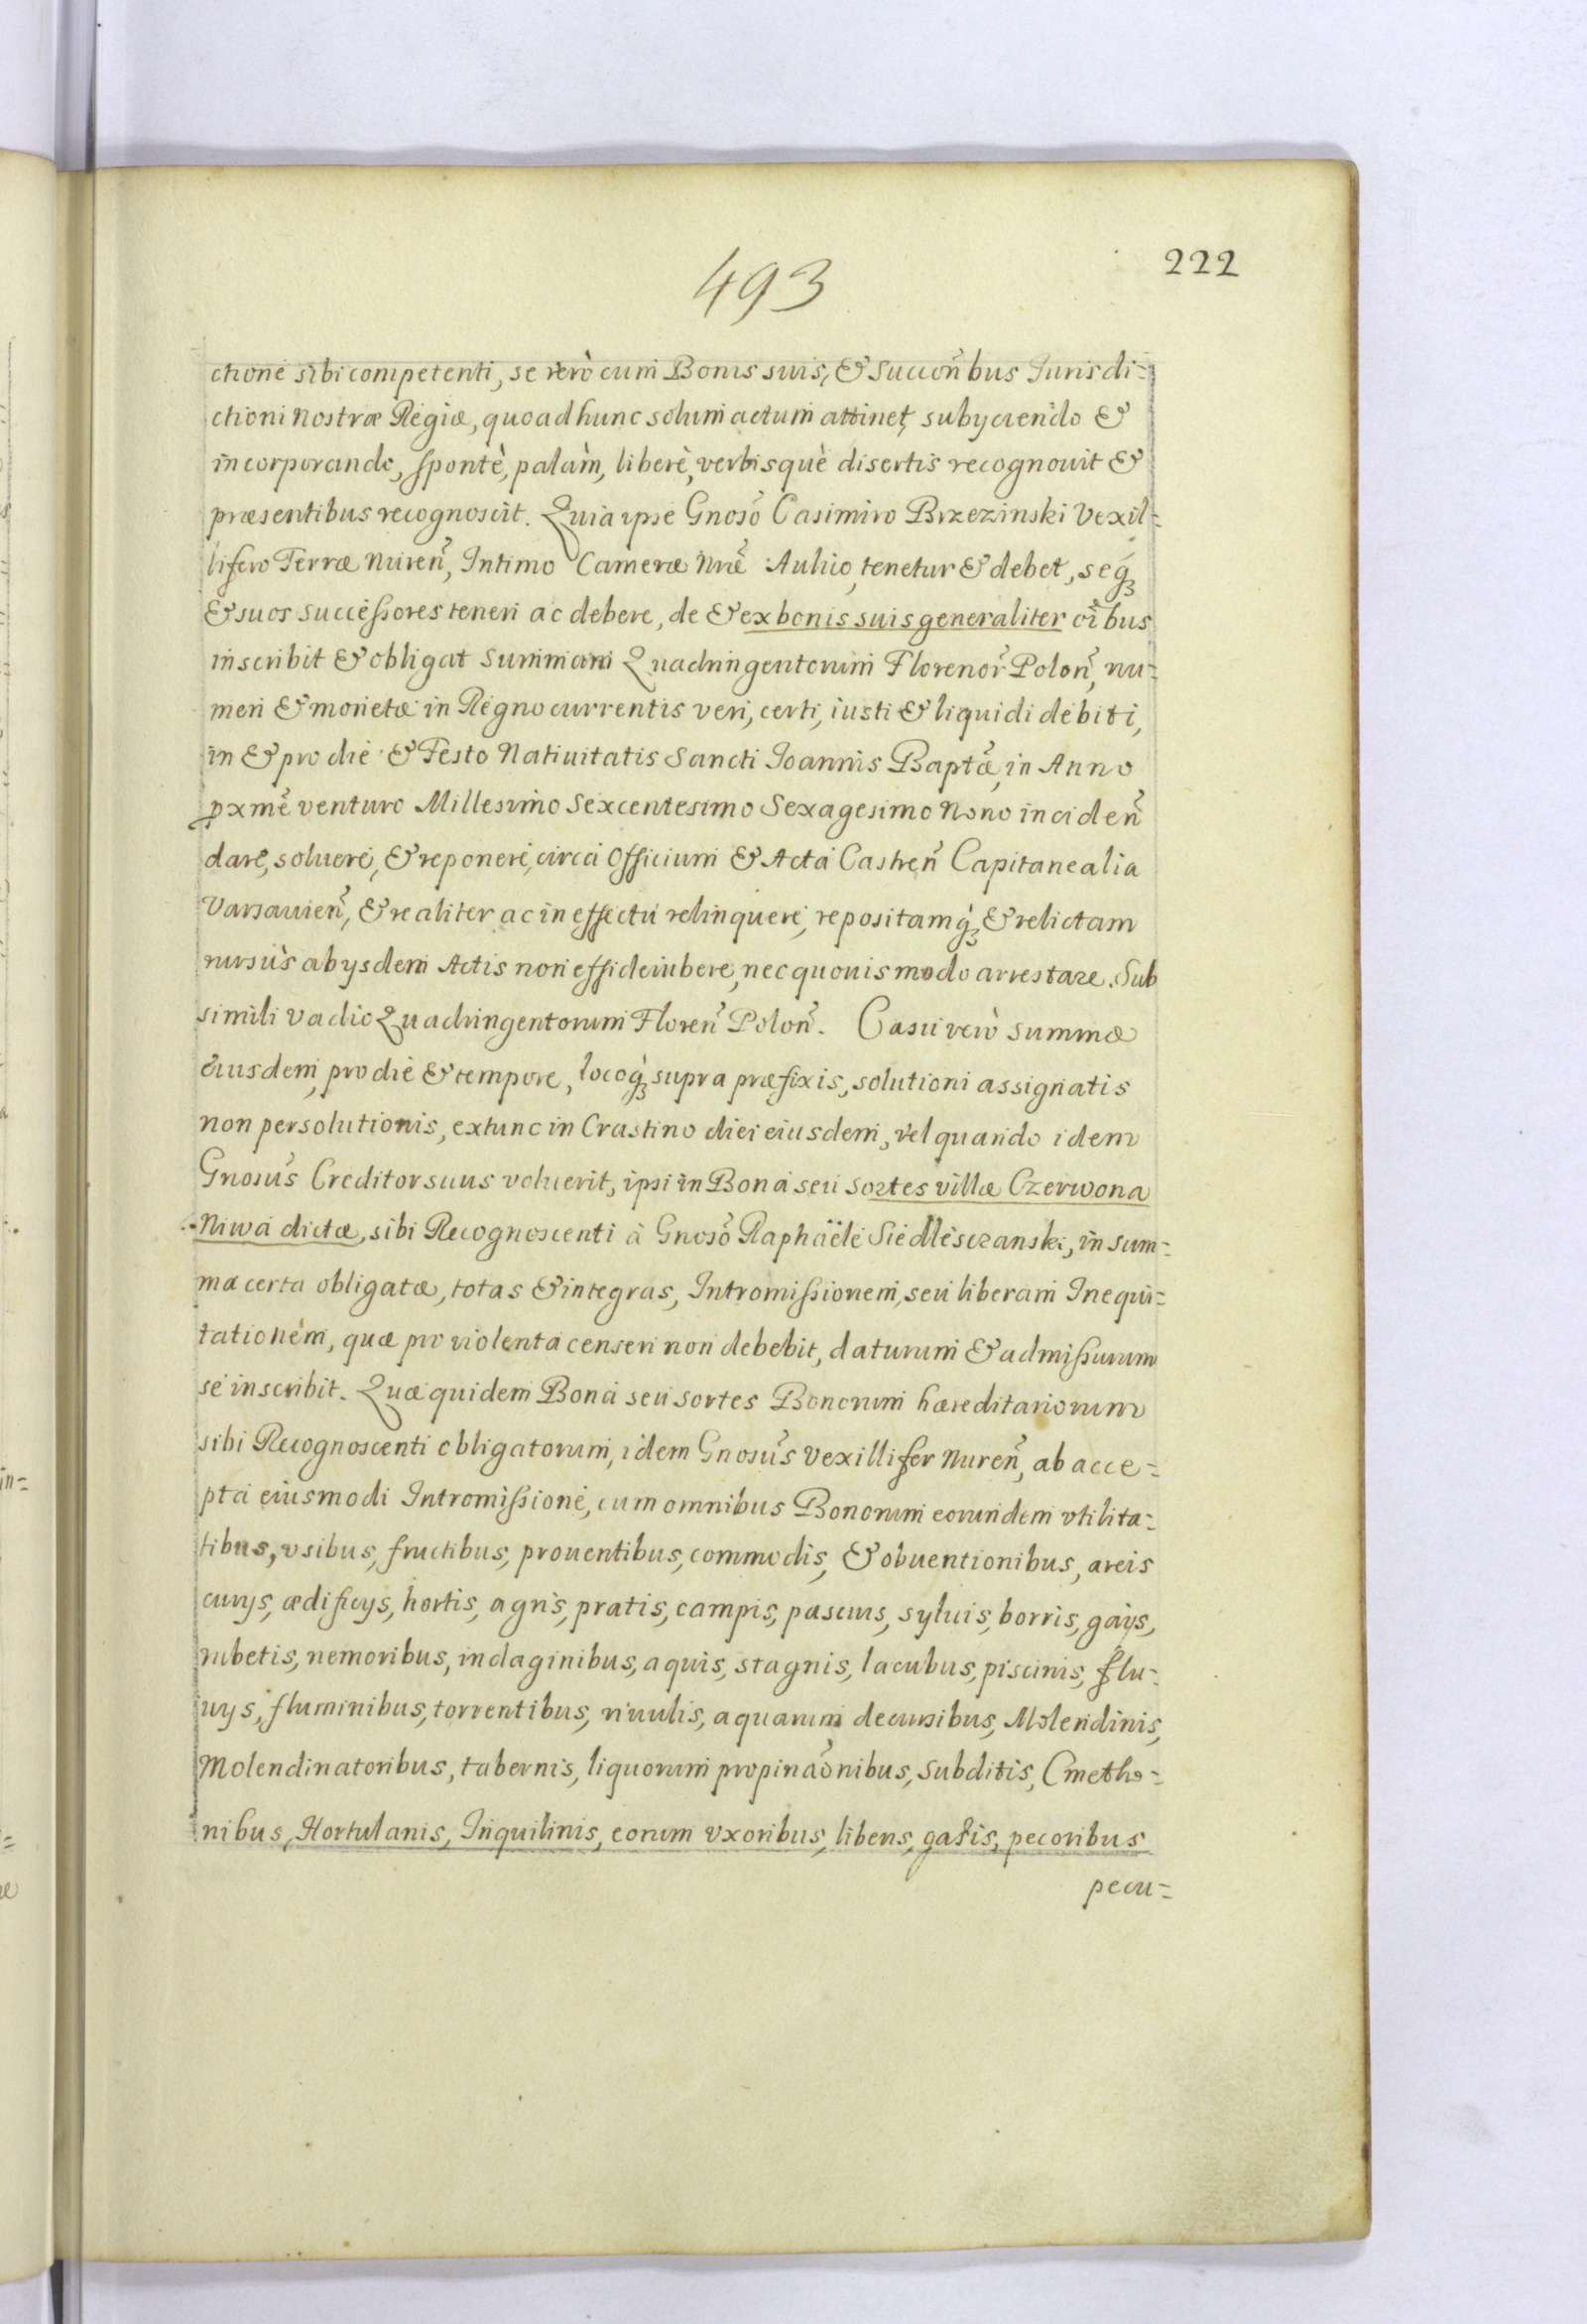 493
222
ctione sibi competenti, se verò cum Bonis suis, & succoñbus Jurisdi=
ctioni nostræ Regiæ, quoad hunc solum actum attinet, subyciendo &
incorporando, spontè, palàm, liberè, verbisquè disertis recognouit &
præsentibus recognoscit. Quia ipse Gnoso᷃ Casimiro Brzezinski Vexil=
lifero Terræ Nureñ, Intimo Cameræ Nræ᷃ Aulico, tenetur & debet, seq᷒
& suos successores teneri ac debere, de & ex bonis suis generaliter oi᷃bus
inscribit & obligat summam Quadringentorum Florenor᷃ Poloñ, nu=
meri & monetæ in Regno currentis veri, certi, iusti & liquidi debiti,
in & pro die & Festo Natiuitatis Sancti Joannis Baptæ᷃, in Anno
pxme᷃ venturo Millesimo Sexcentesimo Sexagesimo Nono incideñ
dare, soluere, & reponere, circa Officium & Acta Castreñ Capitanealia
Varsauieñ, & realiter ac in effectu relinquere, repositamq᷒ & relictam
rursùs ab ysdem Actis non effideiubere, nec quouis modo arrestare. Sub
simili vadio Quadringentorum Floreñ Poloñ. Casu verò summæ
eiusdem, pro die & tempore, locoq᷒ supra præfixis, solutioni assignatis
non persolutionis, extunc in Crastino diei eiusdem, vel quando idem
Gnosus᷃ Creditor suus voluerit, ipsi in Bona seu sortes villæ Czerwona
Niwa dictæ, sibi Recognoscenti à Gnoso᷃ Raphaële Siedlèsczanski, in sum=
ma certa obligatæ, totas & integras, Intromissionem, seu liberam Inequi=
tationem, quæ pro violenta censeri non debebit, daturum & admissurum
se inscribit. Quæ quidem Bona seu sortes Bonorum hæreditariorum
sibi Recognoscenti obligatorum, idem Gnosus᷃ Vexillifer Nureñ, ab acce=
pta eiusmodi Intromissione, cum omnibus Bonorum eorundem vtilita=
tibus, vsibus, fructibus, prouentibus, commodis, & obuentionibus, areis
curys, ædificys, hortis, agris, pratis, campis, pascuis, syluis, borris, gays,
rubetis, nemoribus, indaginibus, aquis, stagnis, lacubus, piscinis, flu=
uys, fluminibus, torrentibus, riuulis, aquarum decursibus, Molendinis,
Molendinatoribus, tabernis, liquorum propinao᷃nibus, Subditis, Cmetho=
nibus, Hortulanis, Inquilinis, eorum vxoribus, liberis, gazis, pecoribus
pecu=